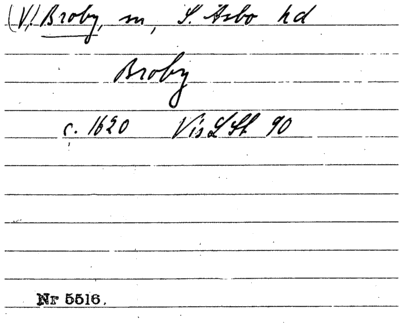 (V) Broby, m, S. Åsbo hd
Broby
c. 1620 VisLSt 90
Nr 5516.